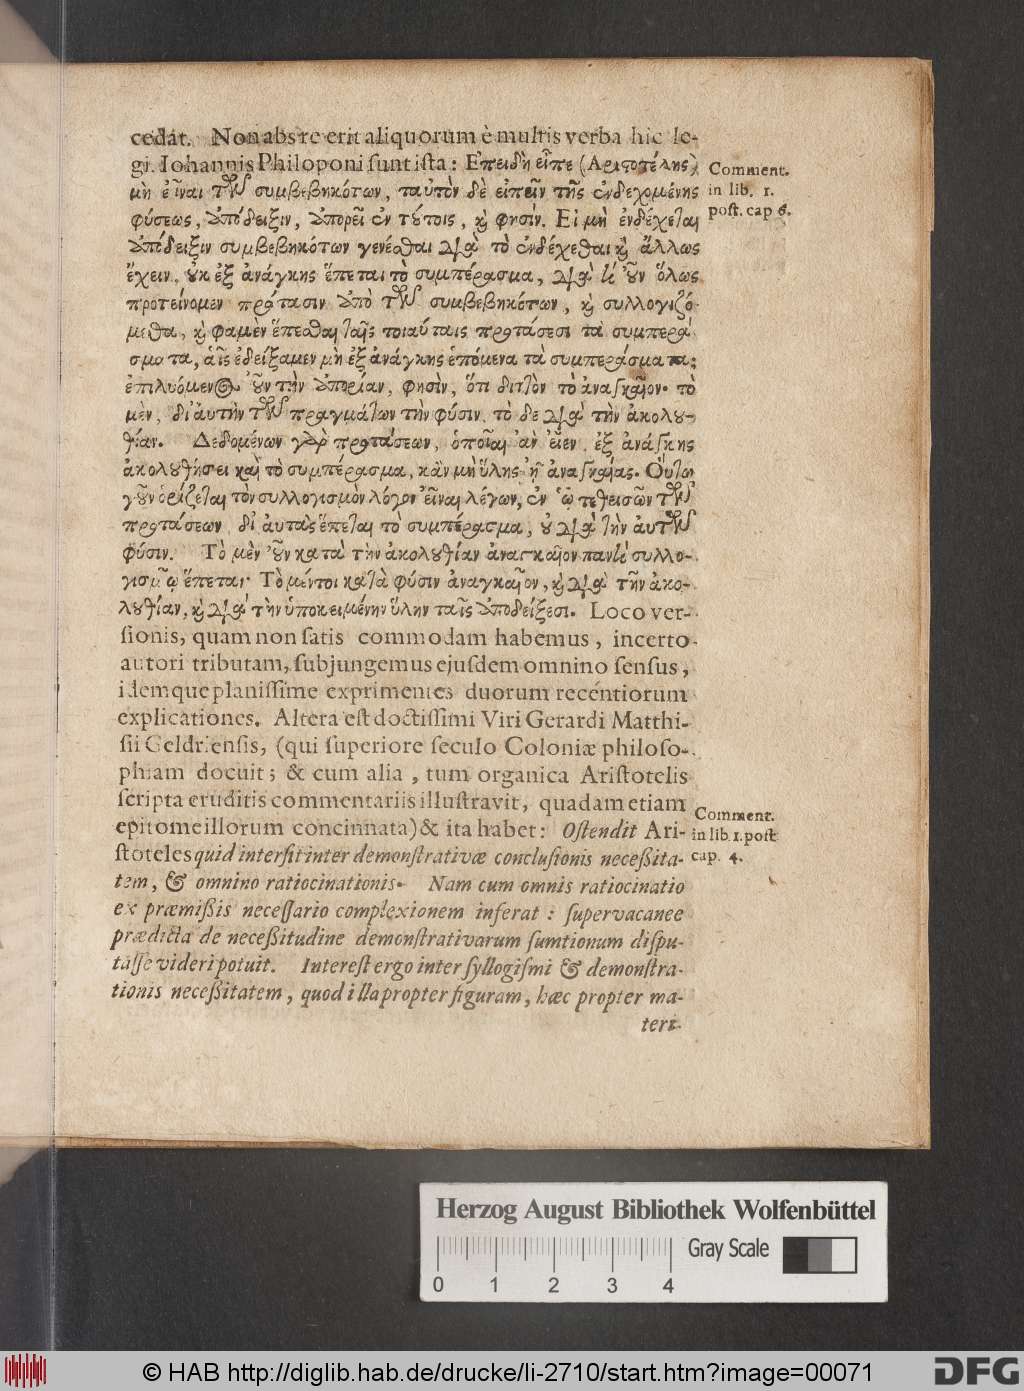 cedat. Non abs re erit aliquorum è multis verba hic le-
gi. Iohannis Philoponi sunt ista: Επειδὴ εἶπε (Αριστοτέλης)
μὴ εἶναι τῶν συμβεβηκότων, ταὐτὸν δὲ εἰπεῖν τῆς ἐνδεχομένης
φύσεως, ἀπόδειξιν, ἀπορεῖ ἐν τούτοις, καὶ φησίν. Εἰ μὴ ἐνδέχεται
ἀπόδειξιν συμβεβηκότων γενέσθαι διὰ τὸ ἐνδέχεσθαι καὶ ἄλλως
ἔχειν, οὐκ ἐξ ἀνάγκης ἕπεται τὸ συμπέρασμα, διὰ τί οὖν ὅλως
προτείνομεν πρότασιν ἀπὸ τῶν συμβεβηκότων, καὶ συλλογιζό-
μεθα, καὶ φαμὲν ἕπεσθαι ταῖς τοιαύταις προτάσεσι τὰ συμπερά-
σματα, αἷς ἐδείξαμεν μὴ ἐξ ἀνάγκης ἑπόμενα τὰ συμπεράσματα;
ἐπιλυόμενος οὖν τὴν ἀπορίαν, φησὶν, ὅτι διττὸν τὸ ἀναγκαῖον. τὸ
μὲν, δι' αὐτὴν τῶν πραγμάτων τὴν φύσιν. τὸ δε διὰ τὴν ἀκολου-
θίαν. Δεδομένων γὰρ προτάσεων, ὁποῖαι ἂν εἶεν, ἐξ ἀνάγκης
ἀκολουθήσει καὶ τὸ συμπέρασμα, κἂν μὴ ὕλης ᾖ ἀναγκαίας. Οὕτω
γοῦν ὁρίζεται τὸν συλλογισμὸν λόγον εἶναι λέγων, ἐν ᾧ τεθεισῶν τῶν
προτάσεων δι' αὐτὰς ἕπεται τὸ συμπέρασμα, οὐ διὰ τὴν αὐτῶν
φύσιν. Τὸ μὲν οὖν κατὰ τὴν ἀκολουθίαν ἀναγκαῖον παντὶ συλλο-
γισμῷ ἕπεται· Τὸ μέντοι κατὰ φύσιν ἀναγκαῖον, καὶ διὰ τὴν ἀκο-
λουθίαν, καὶ διὰ τὴν ὑποκειμένην ὕλην ταῖς ἀποδείξεσι. Loco ver-
sionis, quam non satis commodam habemus, incerto
autori tributam, subjungemus ejusdem omnino sensus,
idemque planissime exprimentes duorum recentiorum
explicationes. Altera est doctissimi Viri Gerardi Matthi-
sii Geldriensis, (qui superiore seculo Coloniæ philoso-
phiam docuit; & cum alia, tum organica Aristotelis
scripta eruditis commentariis illustravit, quadam etiam
epitome illorum concinnata) & ita habet: Ostendit Ari-
stoteles quid intersit inter demonstrativæ conclusionis necessita-
tem, & omnino ratiocinationis. Nam cum omnis ratiocinatio
ex præmissis necessario complexionem inferat: supervacanee
prædicta de necessitudine demonstrativarum sumtionum dispu-
tasse videri potuit. Interest ergo inter syllogismi & demonstra-
tionis necessitatem, quod illa propter figuram, hæc propter ma-
teri-
Comment.
in lib. 1.
post. cap 6.
Comment.
in lib. 1. post
cap. 4.
Herzog August Bibliothek Wolfenbüttel
0 1 2 3 4
Gray Scale
© HAB http://diglib.hab.de/drucke/li-2710/start.htm?image=00071
DFG